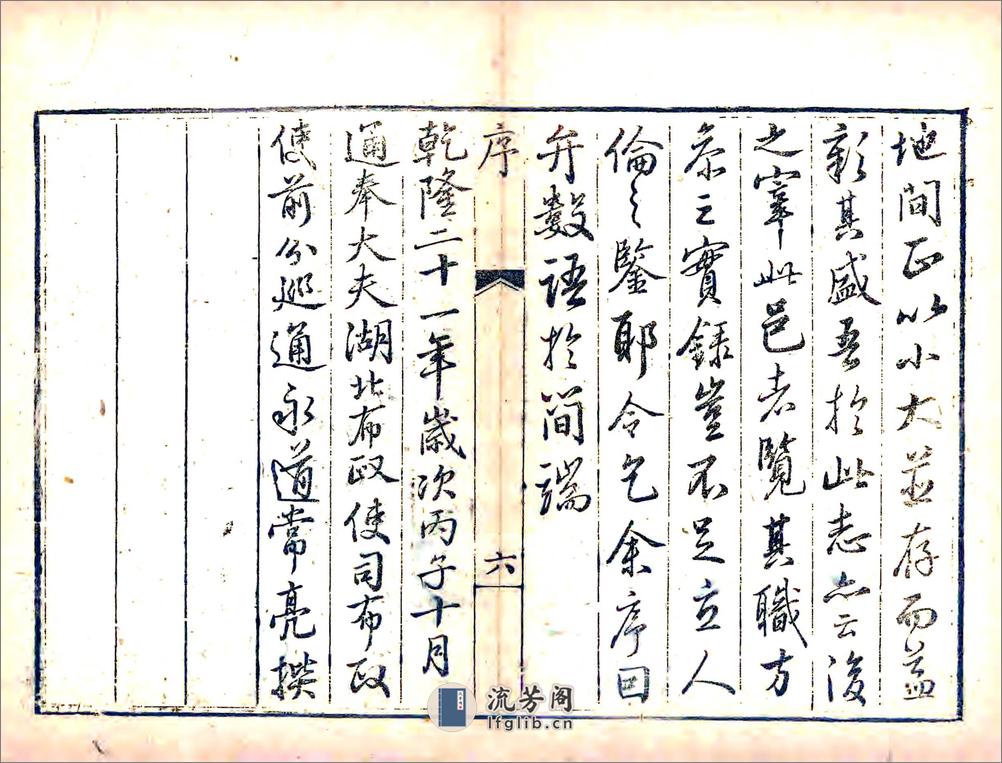 地間正以小大並存而益
彰其盛吾於此志亦云後
之宰此邑者覽其職方
参之實錄豈不足立人
倫之鑒耶令乞余序因
弁數語於簡端
序
六
乾隆二十一年歲次丙子十月
通奉大夫湖北布政使司布政
使前分巡通永道常亮撰
流芳阁
lfglib.cn